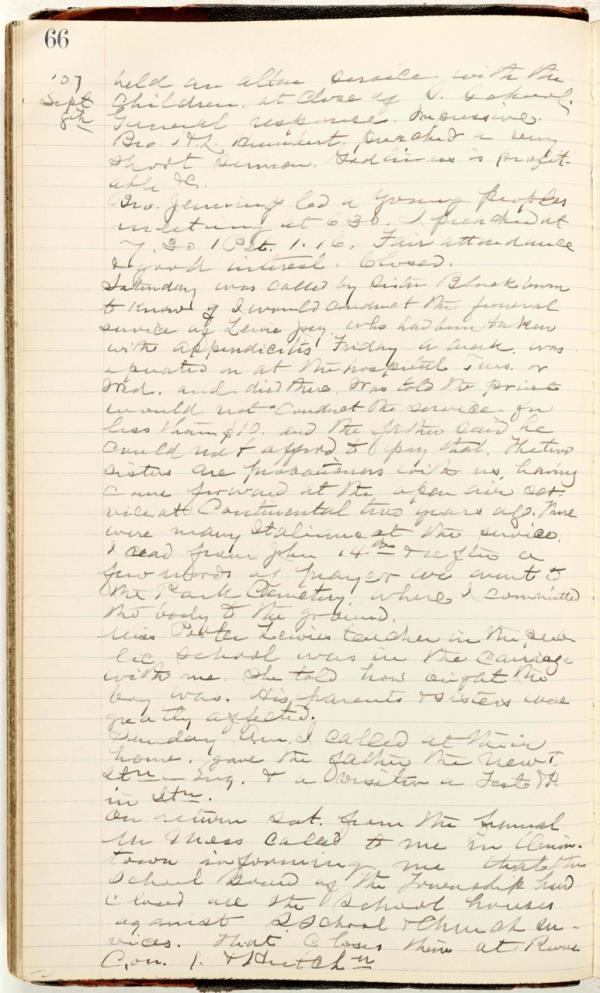 66
'07 held an altar service with the
Sept children at close of S. School.
8th General response. Impressive.
Bro. H.L. preached a very
short sermon. Godliness is profit-
able &c.
Bro. Jennings led a young peoples
meeting at 6 30. I preached at
7.30 1 Pet. 1.16. Fair attendance
& good interest. Closed.
Saturday was called by Sister Blackburn
to know if I would conduct the funeral
service of Lewie who had been taken
with appendicitis Friday a week. was
operated on at the hospital Tues. or
Wed. and died there. Was told the priest
would not conduct the service for
less than $12. and the father said he
could not afford to pay that. The two
sisters are probationers with us, having
came forward at the open air ser-
vice at Continental two years ago. There
were many Italians at the service.
I read from John 14th & after a
few words of prayer we went to
the Park Cemetery where I committed
the body to the ground.
Miss Porter Lewies teacher in the pub-
lic school was in the carriage
with me. She told how bright the
boy was. His parents & sisters were
greatly affected.
Sunday a.m. I called at their
home. gave the father the New T.
Itn - Eng. & a visitin a
in Itn.
On return Sat. from the funeral
Mr Moss called to me in Union-
town informing me that the
School Board of the Township had
closed all the School houses
against S School & Church ser-
vices. That closes them at
Con. 1. & Hutchn